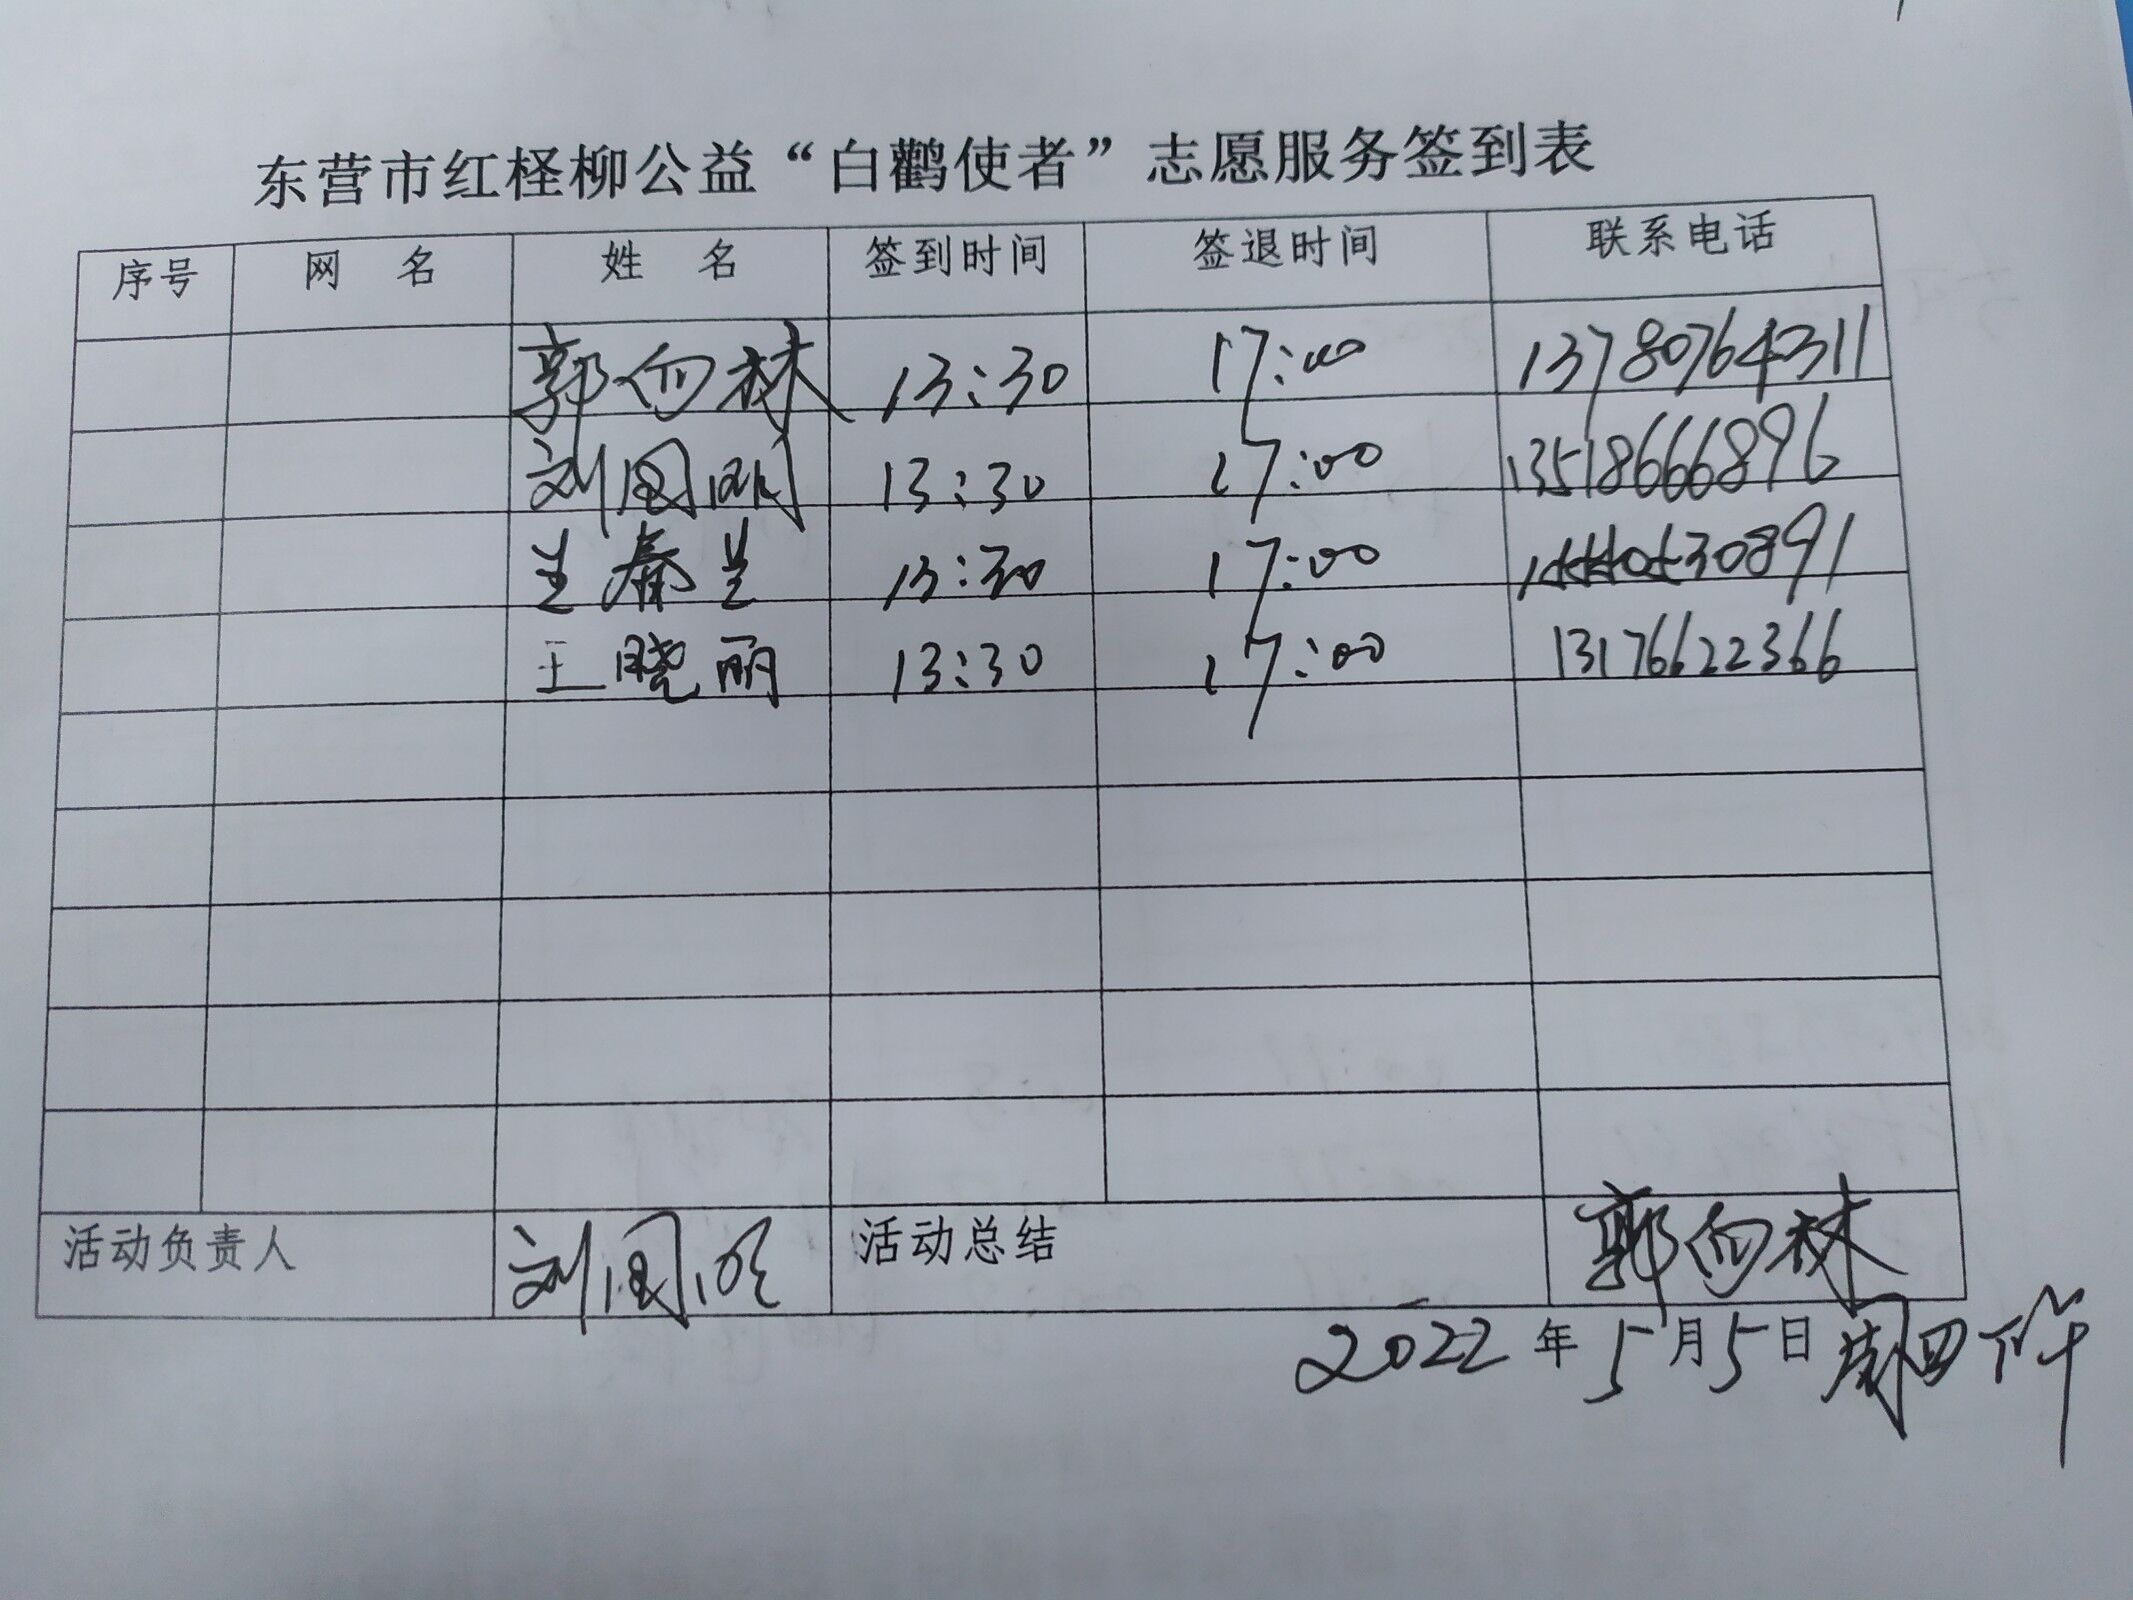 东营市红柽柳公益“白鹳使者”志愿服务签到表
序号 网 名 姓 名 签到时间 签退时间 联系电话
郭向林 13:30 17:00 13780764311
刘国明 13:30 17:00 13518666896
王春兰 13:30 17:00
王晓丽 13:30 17:00 13176622366
活动负责人 刘国明 活动总结 郭向林
2022年5月5日 周四下午